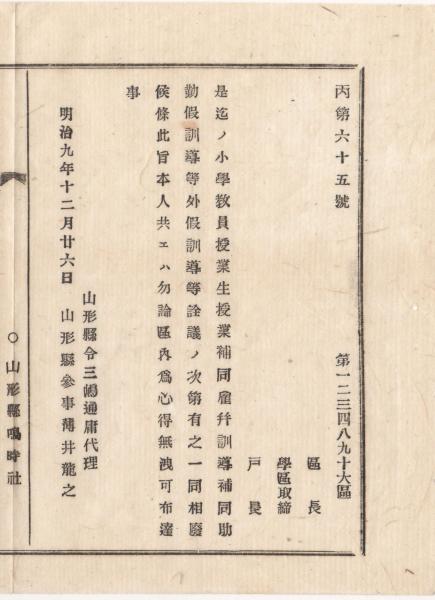 丙第六十五號
第一二三四八九十大區
區長
學區取締
戸長
是迄ノ小學敎員授業生授業補同雇幷訓導補同助
勤假訓導等外假訓導等詮議ノ次第有之一同相廢
候條此旨本人共ヱハ勿論區內爲心得無洩可布達
事
明治九年十二月廿六日
山形縣令三嶋通庸代理
山形縣參事薄井龍之
○山形縣鳴時社